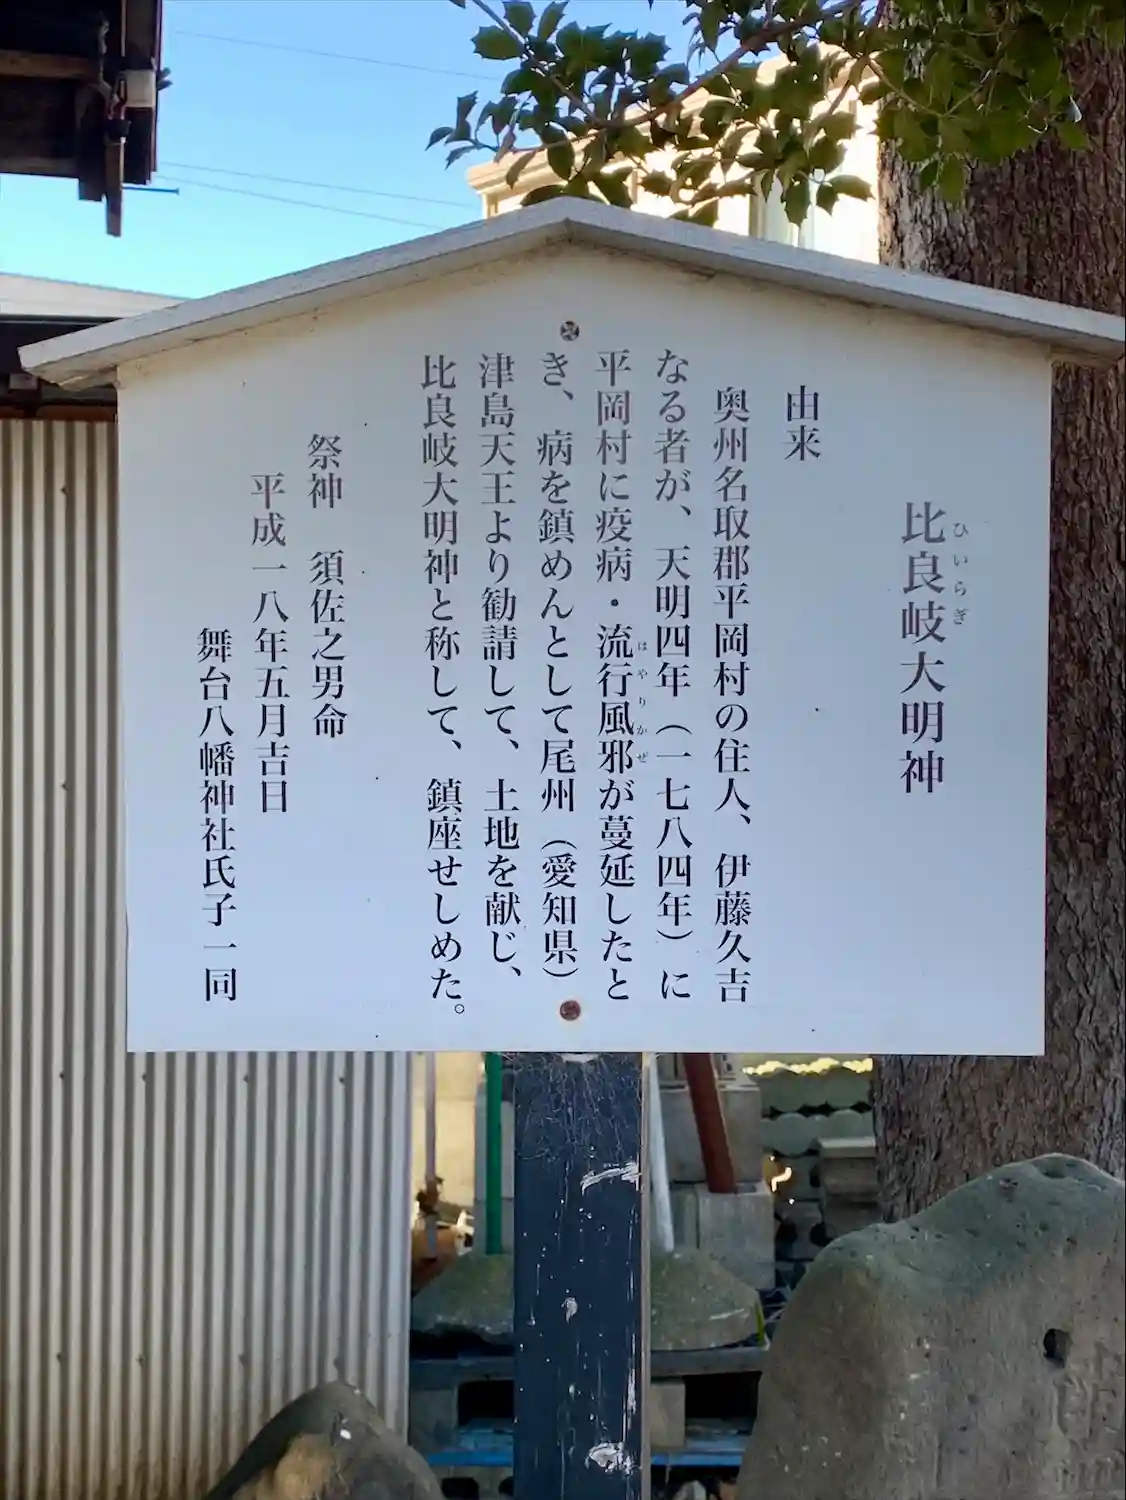 比良岐大明神
ひいらぎ
由来
奥州名取郡平岡村の住人、伊藤久吉
なる者が、天明四年（一七八四年）に
平岡村に疫病・流行風邪が蔓延したと
はやりかぜ
き、病を鎮めんとして尾州（愛知県）
津島天王より勧請して、土地を献じ、
比良岐大明神と称して、鎮座せしめた。
祭神　須佐之男命
平成一八年五月吉日
舞台八幡神社氏子一同